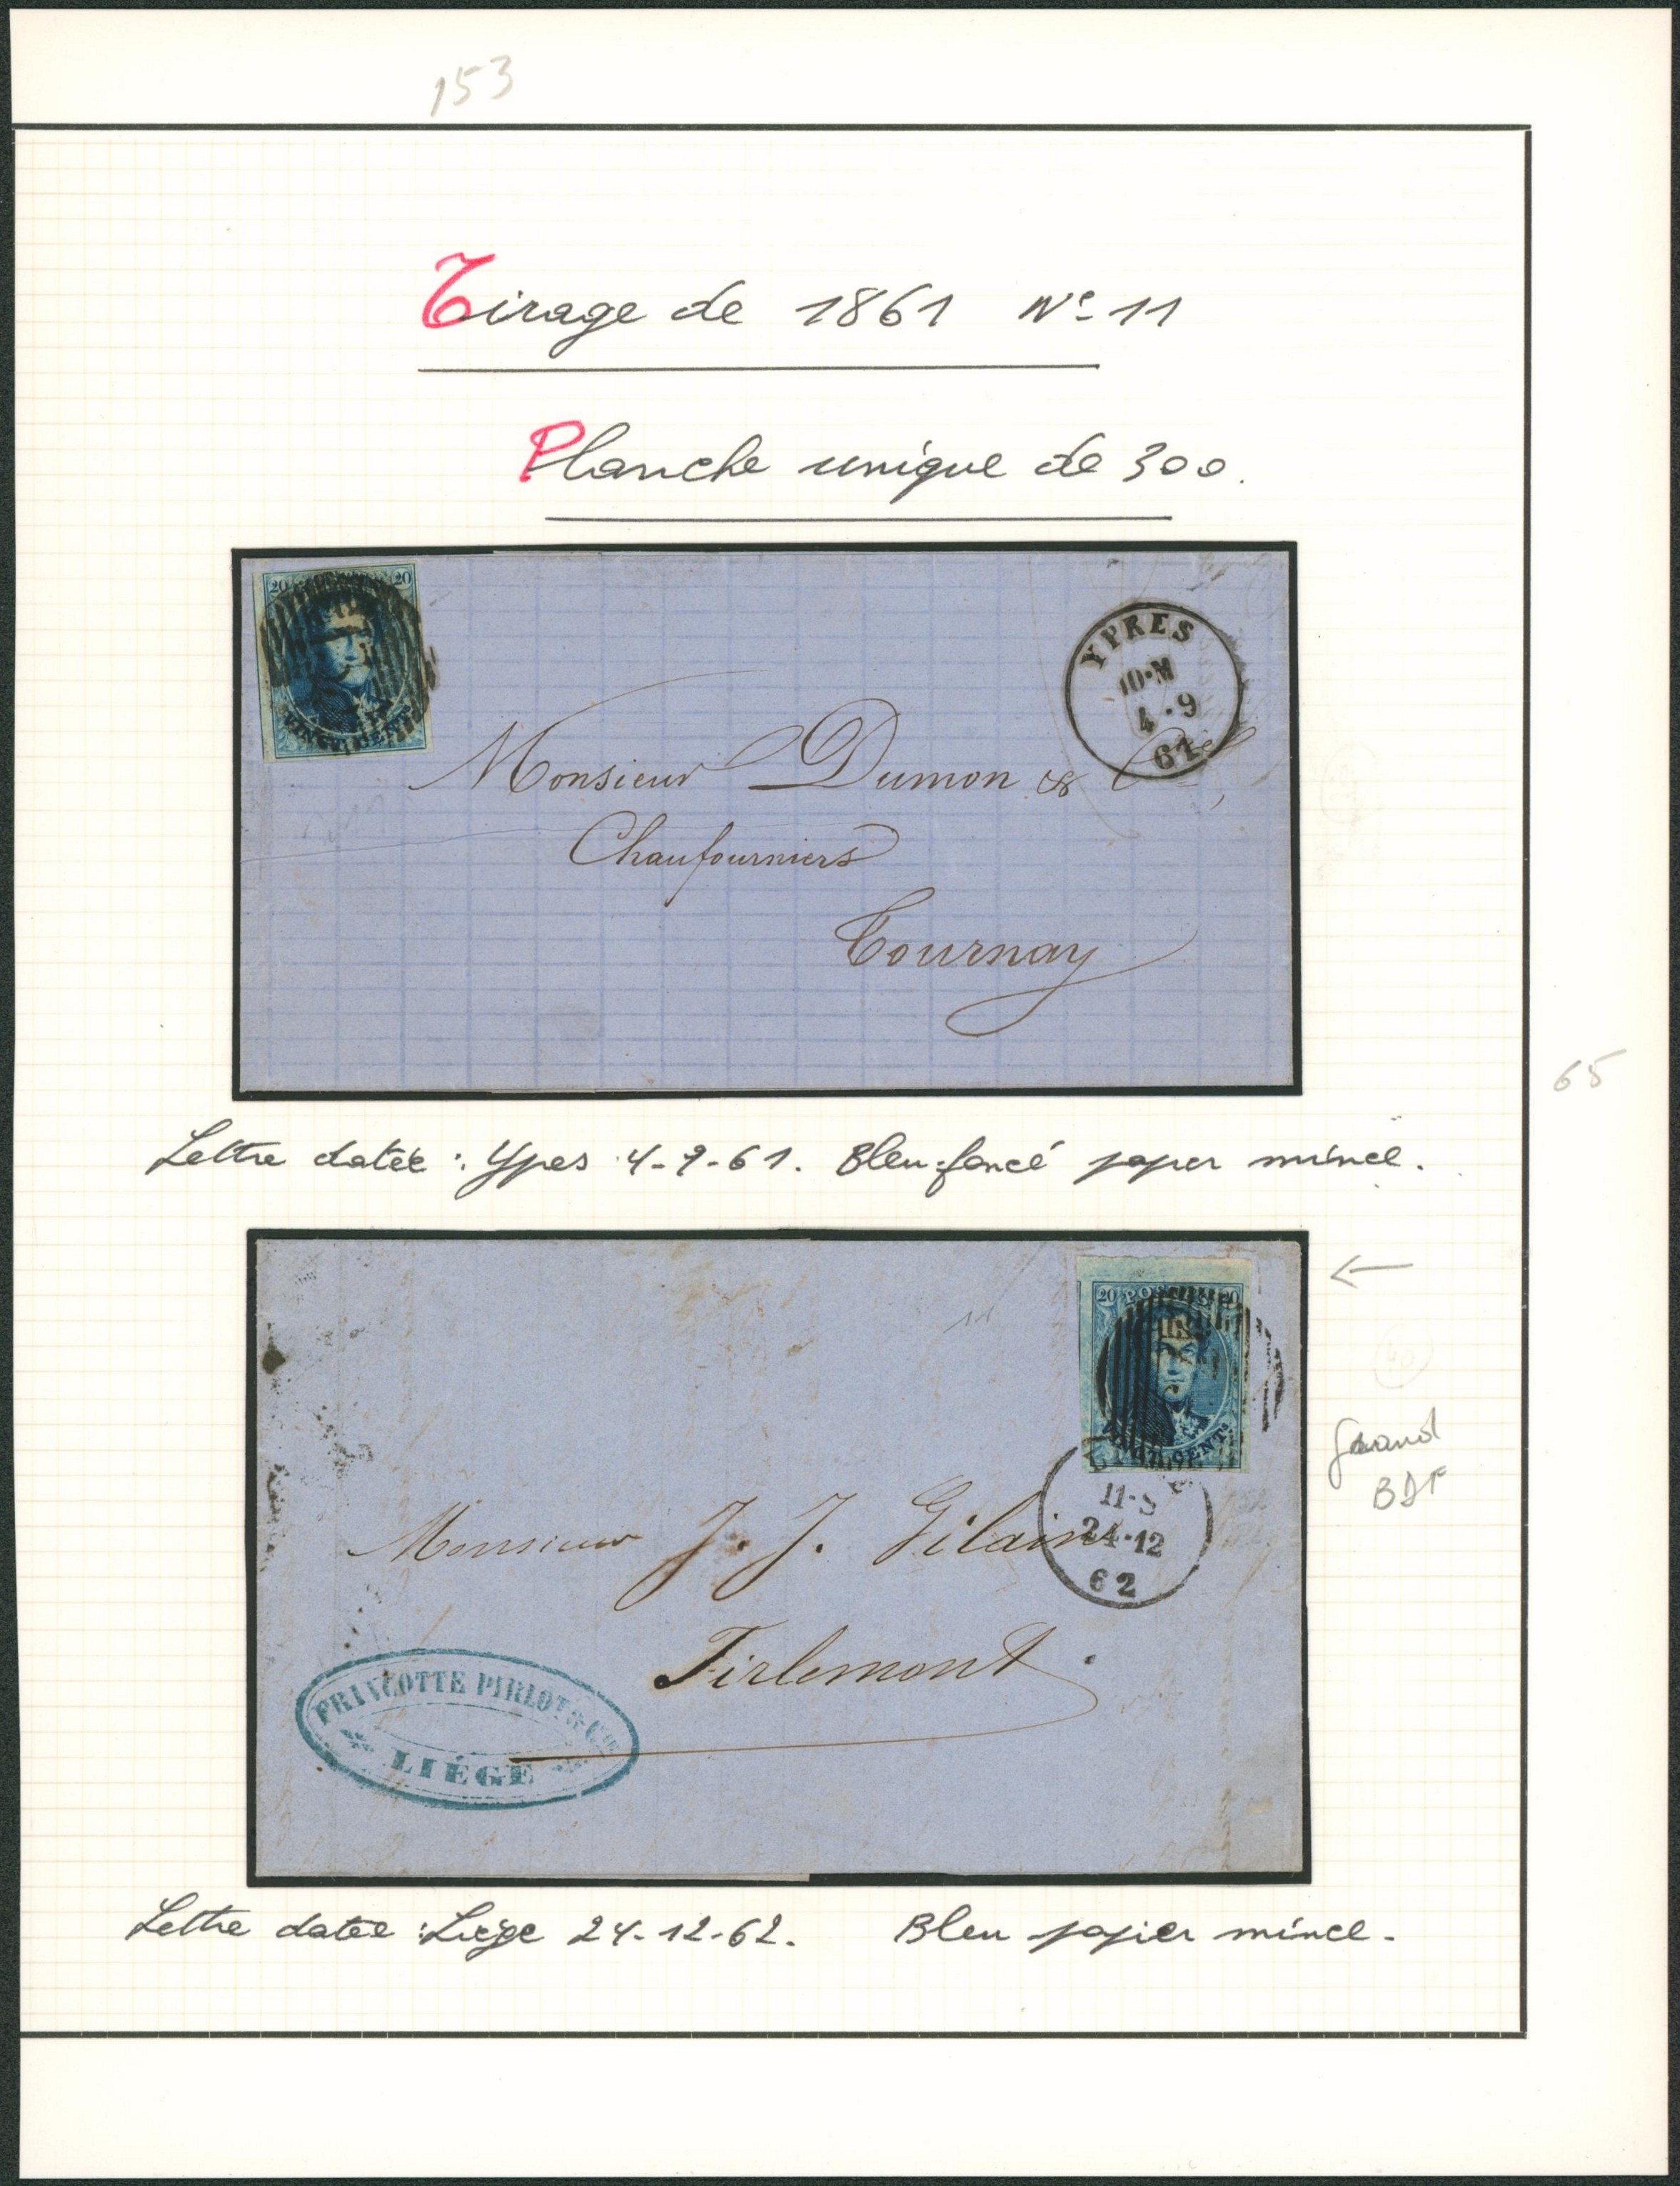 153
Tirage de 1861 N° 11
Planche unique de 300.
20 20
VINGT CENT.
YPRES
10·M
4·9
61
Monsieur Dumon &
Chaufourniers
Tournay
65
Lettre datée : Ypres 4-9-61. Bleu-foncé papier mince.
20 POSTES 20
VINGT CENT.
11-S
24·12
62
Grand
BDF
Monsieur J. J. Gilain
Tirlemont
FRANCOTTE PIRLOT & Cie
LIÉGE
Lettre datée : Liège 24-12-62. Bleu papier mince.